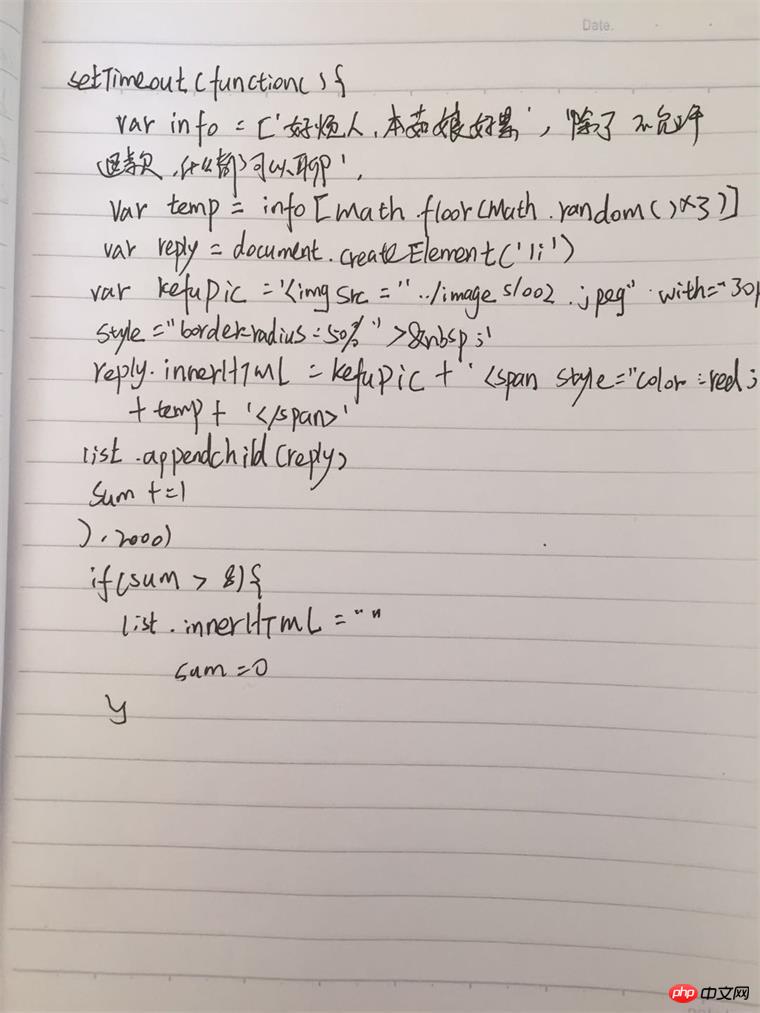 Date.
setTimeout(function(){
var info = ['好烦人,本姑娘好累', '除了不允许
退款,什么都可以聊',
var temp = info[math.floor(Math.random()*3)]
var reply = document.createElement('li')
var kefuPic ='<img src="../images/002.jpeg" with="30p
style="border-radius:50%">&nbsp;'
reply.innerHTML = kefuPic + '<span style="color:red;
+ temp + '</span>'
list.appendchild(reply)
sum +=1
},2000)
if(sum > 8){
list.innerHTML = ""
sum=0
}
php 中文网